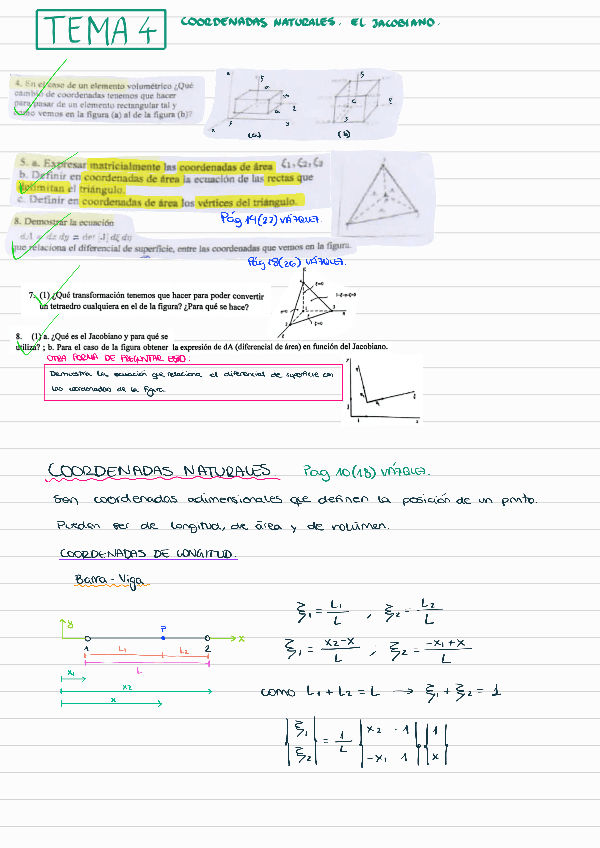 TEMA 4
COORDENADAS NATURALES. EL JACOBIANO.
4. En el caso de un elemento volumétrico ¿Qué
cambio de coordenadas tenemos que hacer
para pasar de un elemento rectangular tal y
como vemos en la figura (a) al de la figura (b)?
(a)
(b)
5. a. Expresar matricialmente las coordenadas de área ξ1, ξ2, ξ3
b. Definir en coordenadas de área la ecuación de las rectas que
delimitan el triángulo.
c. Definir en coordenadas de área los vértices del triángulo.
Pág 14(22) VÁZQUEZ.
8. Demostrar la ecuación
dA = dx dy = det [J] dξ dη
que relaciona el diferencial de superficie, entre las coordenadas que vemos en la figura.
Pág 18(26) VÁZQUEZ.
7. (1) ¿Qué transformación tenemos que hacer para poder convertir
un tetraedro cualquiera en el de la figura? ¿Para qué se hace?
8. (1) a. ¿Qué es el Jacobiano y para qué se
utiliza? ; b. Para el caso de la figura obtener la expresión de dA (diferencial de área) en función del Jacobiano.
OTRA FORMA DE PREGUNTAR ESTO:
Demuestra la ecuación que relaciona el diferencial de superficie con
las coordenadas de la figura.
COORDENADAS NATURALES. Pág 10(18) VÁZQUEZ.
Son coordenadas adimensionales que definen la posición de un punto.
Pueden ser de longitud, de área y de volúmen.
COORDENADAS DE LONGITUD.
Barra - Viga
ξ1 = L1/L , ξ2 = L2/L
y P x
1 2
L1 L2
L
x1
x2
x
ξ1 = x2-x/L , ξ2 = -x1+x/L
como L1 + L2 = L → ξ1 + ξ2 = 1
{ξ1 ξ2} = 1/L [x2 -1 -x1 1] · {1 x}